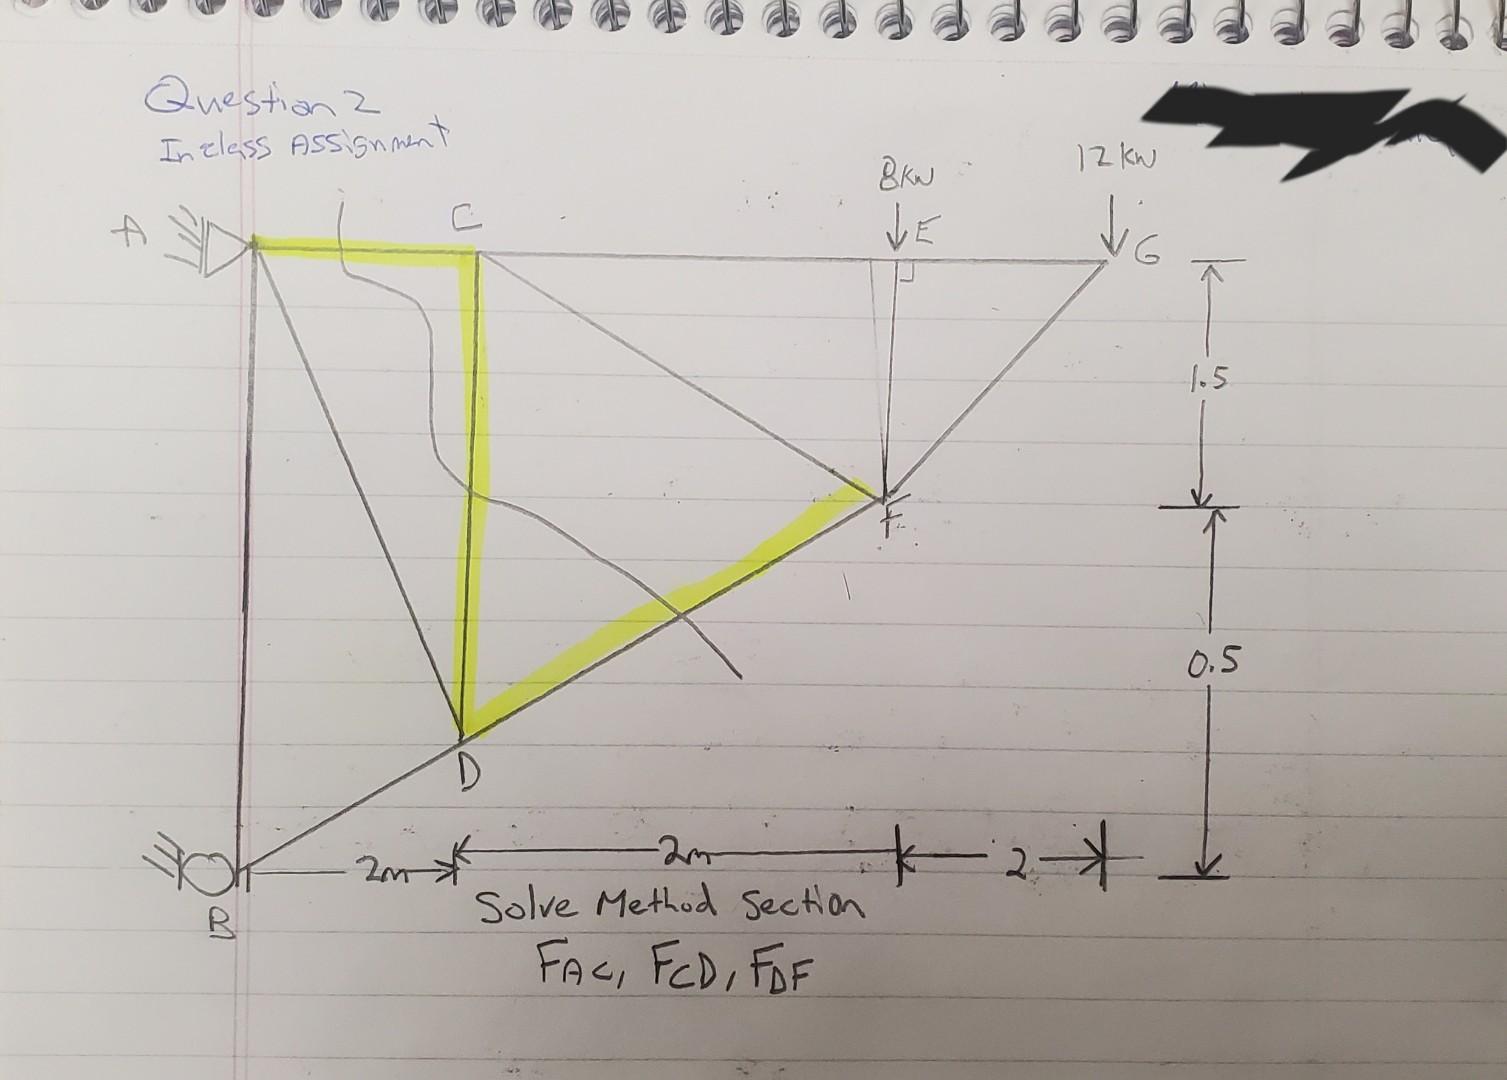 Question 2
Inclass Assignment
12 kN
8kN
A
C
E
G
1.5
F
0.5
D
2m
2m
2
B
Solve Method Section
FAC, FCD, FDF